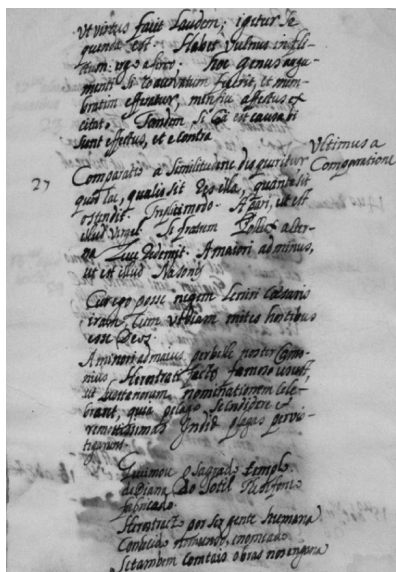 ut virtus facit laudem; igitur se
quenda est. Habes vulnus infli-
ctum: ergo a ferro. hoc genus argu-
menti si coacervatum fuerit, et mem-
bratim efferatur, mirifice affectus ex
citat. Tandem, si ea est causa ubi
sunt effectus, et e contra
Ultimus a
Comparatione
27
Comparatio a Similitudine disquiritur
quod hac, qualis sit res illa, quanta sit
ostendit. Triplici modo. A pari, ut est
illud Virgil. Si fratrem Pollux alter-
na
A maiori ad minus,
ut est illud Nasonis
Cur ego posse negem leniri Caesaris
iram, Cum videam mites hostibus
esse Deos.
A minori ad maius, perbelle noster Camo-
nius, Herostrati facto famoso
ut Lusitanorum nominationem cele-
brant, quia pelago se indidere et
remotissimas Indiae plagas pervs-
tigarunt.
Queimou o sagrado templo
de Diana do sotil Tesifonio
fabricado.
Herostrato por ser da gente humana
Conhecido no mundo, e nomeado
Se tambem com tais obras nos engana